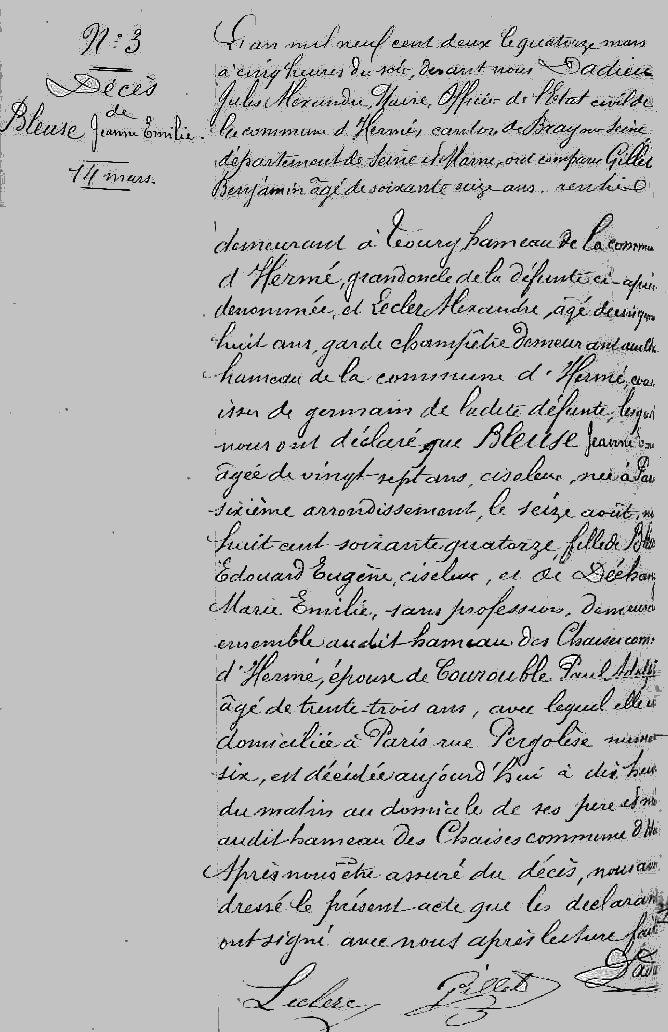 N° 3
Décès
de
Bleuse Jeanne Emilie.
14 mars.
L'an mil neuf cent deux le quatorze mars
à cinq heures du soir, devant nous Dadieu
Jules Alexandre, Maire, Officier de l'Etat civil de
la commune d'Hermé, canton de Bray sur Seine
département de Seine et Marne, ont comparu Gillet
Benjamin âgé de soixante seize ans, rentier
demeurant à Toury hameau de la commune
d'Hermé, grand oncle de la défunte ci-après
dénommée, et Lecler Alexandre, âgé de
huit ans, garde champêtre demeurant
hameau de la commune d'Hermé, cou
issu de germain de ladite défunte, lesquels
nous ont déclaré que Bleuse Jeanne
âgée de vingt-sept ans, ciseleur, née à Par
sixième arrondissement, le seize août, m
huit cent soixante quatorze, fille de Bleu
Edouard Eugène, ciseleur, et de Décham
Marie Emilie, sans profession, demeura
ensemble audit hameau des Chaises com
d'Hermé, épouse de Courouble Paul Adolp
âgé de trente-trois ans, avec lequel elle é
domiciliée à Paris rue Pergolèse numer
six, est décédée aujourd'hui à dix heu
du matin au domicile de ses père et m
audit hameau des Chaises commune d'H
Après nous être assuré du décès, nous av
dressé le présent acte que les declaran
ont signé avec nous après lecture fait
Leclerc Gillet Dadi